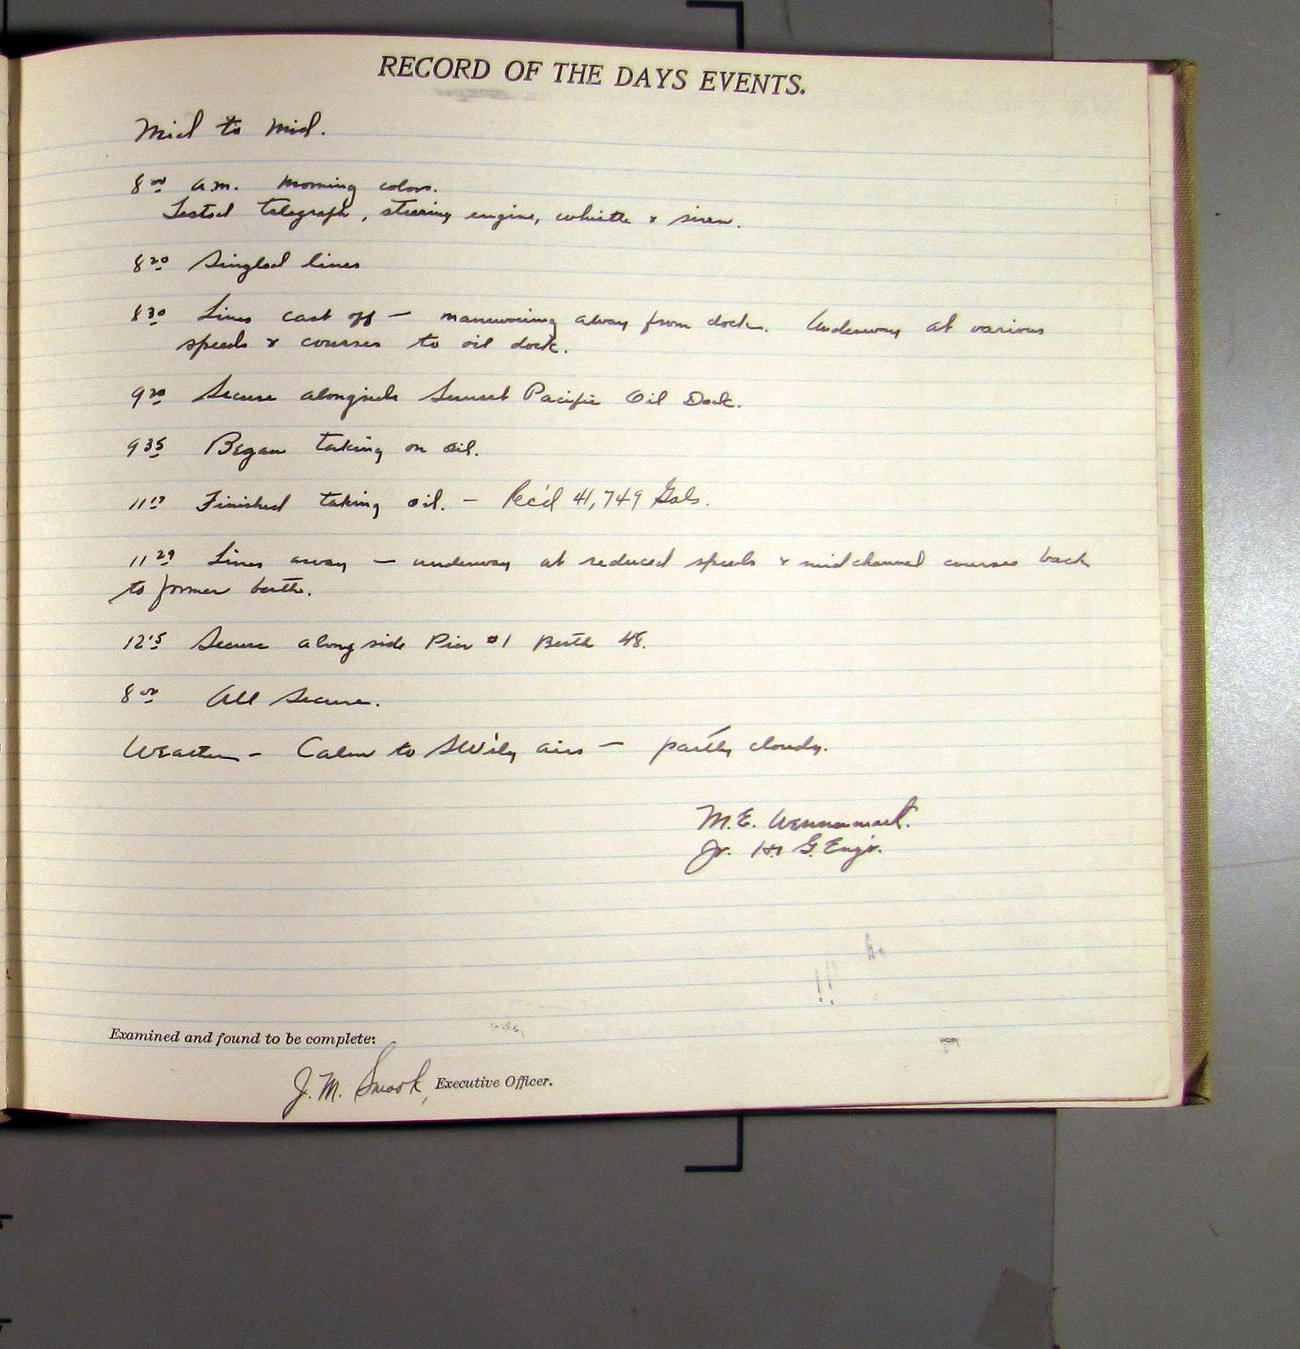 RECORD OF THE DAYS EVENTS.
Mid to Mid.
8 00 a.m. Morning colors.
Tested telegraph, steering engine, whistle & siren.
8 20 Singled lines
8 30 Lines cast off — maneuvering away from dock. Underway at various
speeds & courses to oil dock.
9 20 Secure alongside Sunset Pacific Oil Dock.
9 35 Began taking on oil.
Finished taking oil. — Rec'd 41,749 Gals.
11 29 Lines away — underway at reduced speeds & midchannel courses back
to former berth.
12 15 Secure along side Pier #1 Berth 48.
8 00 All Secure.
Weather — Calm to SW'ly airs — partly cloudy.
M.E. Wennermark.
Jr. H & G. Engr.
Examined and found to be complete:
J. M. Smook, Executive Officer.